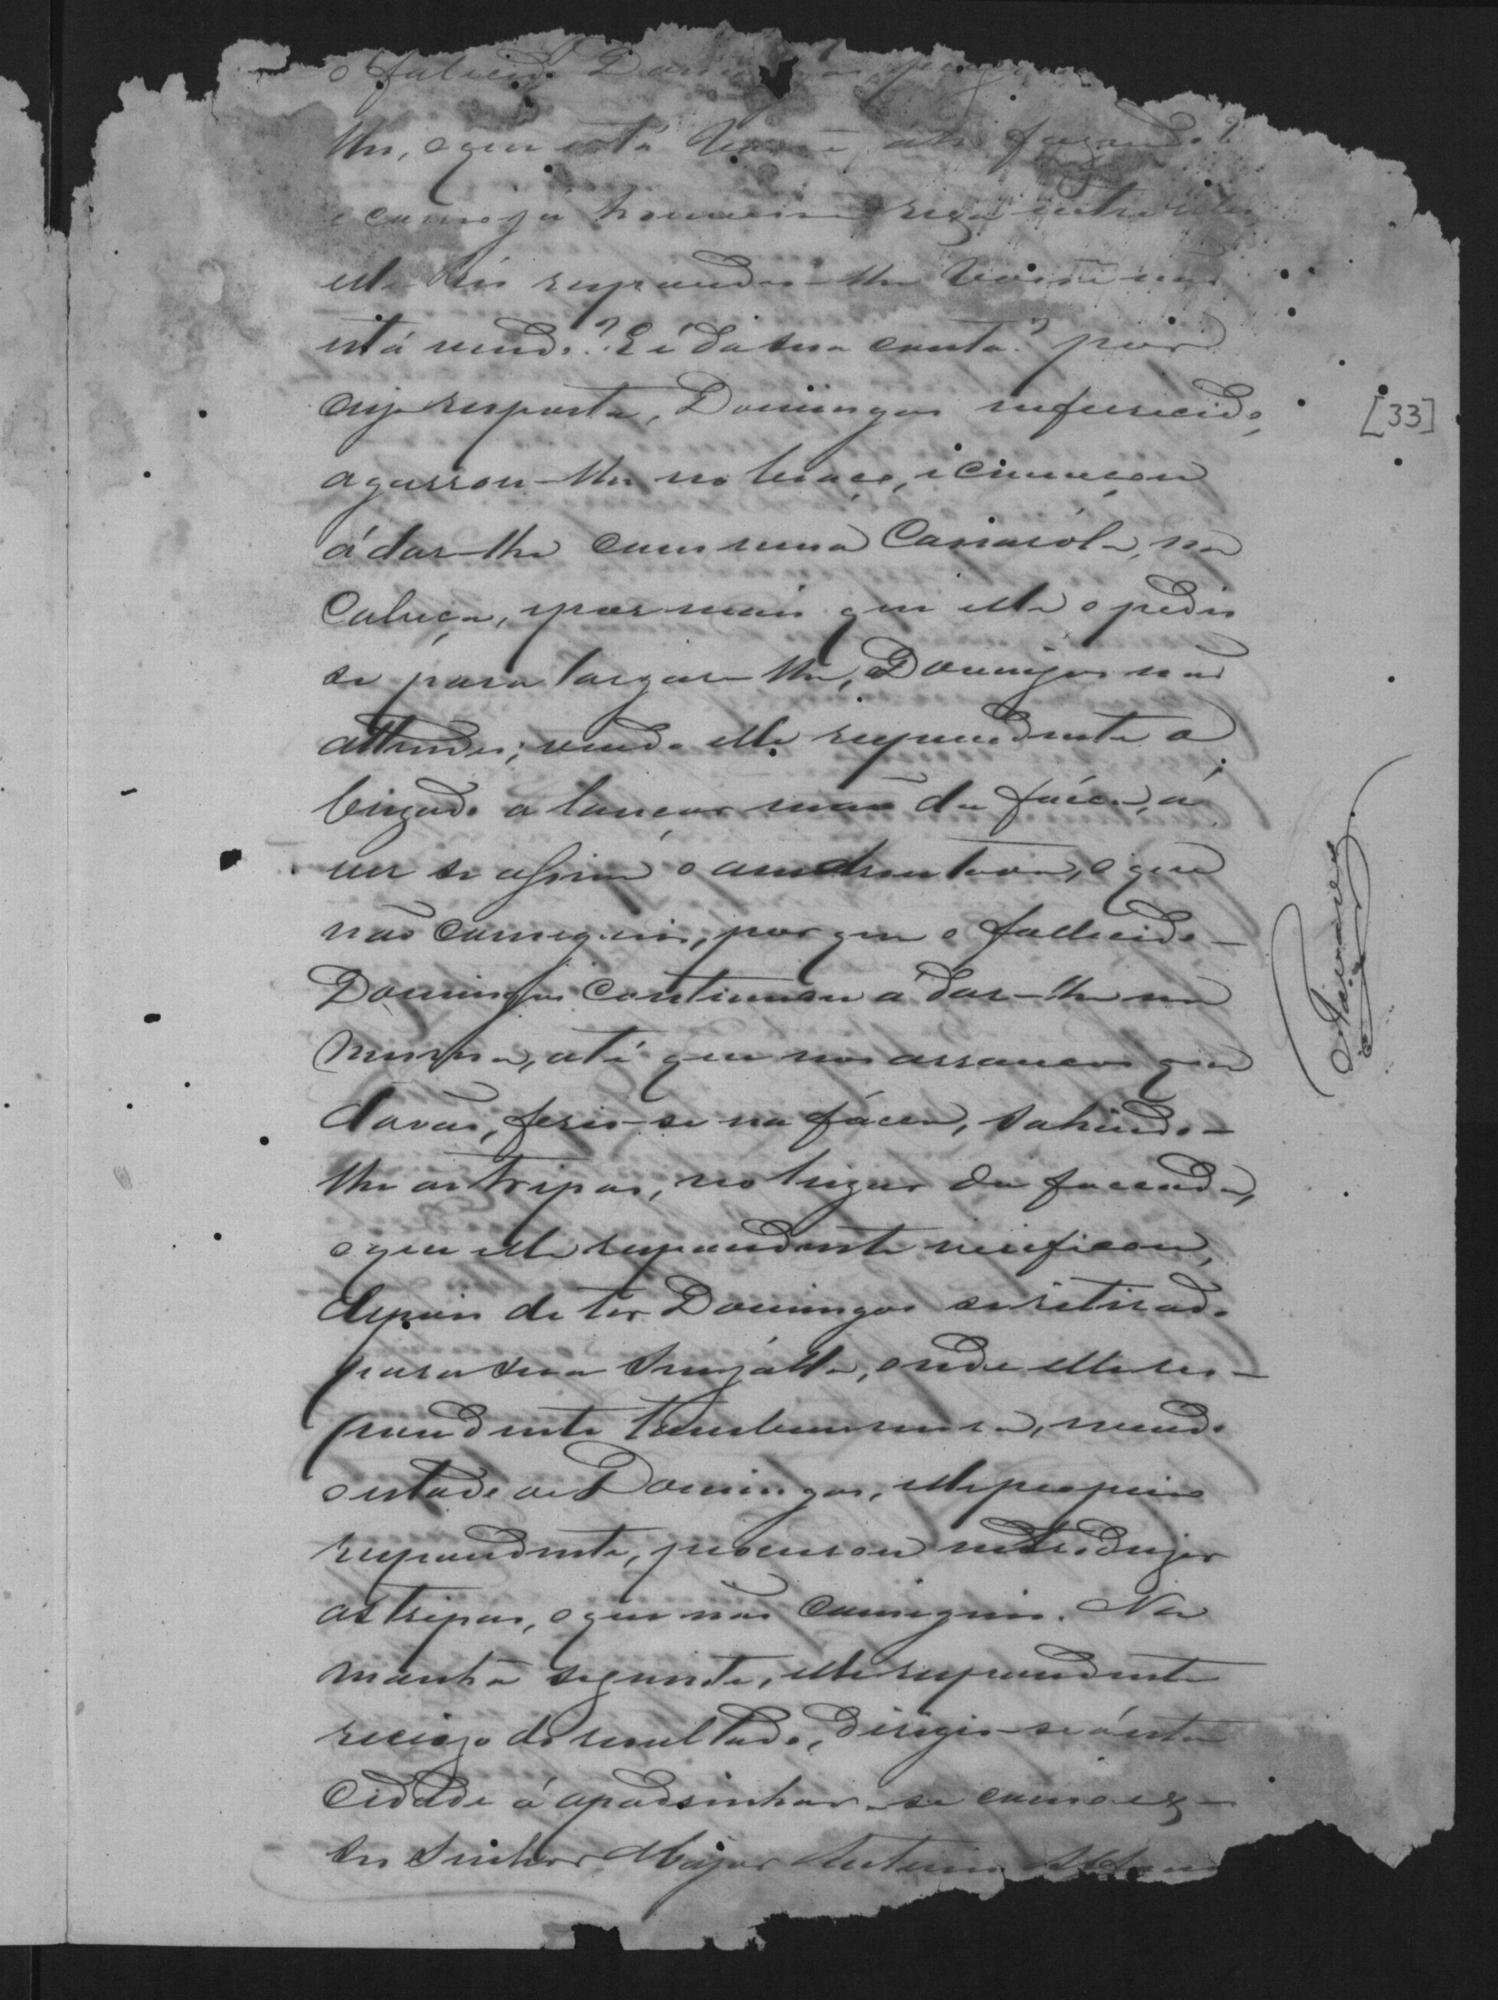 o fallecido Domingos
lhe, o que está Vossê ahi fazendo?
e como já houvesse rixa entre elles
elle Réo respondeo-lhe Vossê não
está vendo? E é da sua conta? por
cuja resposta, Domingos enfurecido,
agarrou-lhe no braço, e começou
á dar-lhe com uma Cassaróla, na
Cabeça, e por mais que elle o pedis
se para largar-lhe, Domingos não
attendeo; vendo elle respondente o
brigado a lançar mão da fáca, á
ver se assim o amedrontava, o que
não conseguio, porque o fallecido-
Domingos continuou a dar-lhe na
mesma, até que nos arrancos que
davão, ferio-se na fáca, sahindo-
lhe as tripas, no lugar da facada,
o que elle respondente verificou,
depois de ter Domingos se retirado
para sua Senzálla, onde elle res-
pondente tambem mora, vendo
o estado de Domingos, elle proprio
respondente, procurou introduzir
as tripas, o que não conseguio. Na
manhã seguinte, elle respondente
receiozo do resultado, dirigio-se á esta
Cidade á apadrinhar-se com o ex-
seu Senhor Major Antonio
[33]
Tavares